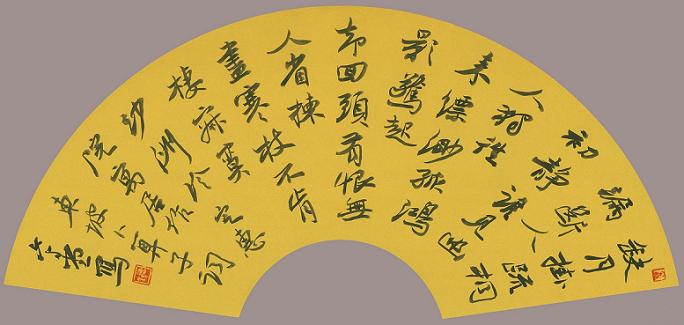 缺月掛疏桐
漏斷人
初靜誰見幽
人獨往
來縹緲孤鴻
影驚起
却回頭有恨無
人省揀
盡寒枝不肯
棲寂寞
沙洲冷定惠
院寓居作
東坡卜算子詞
寫